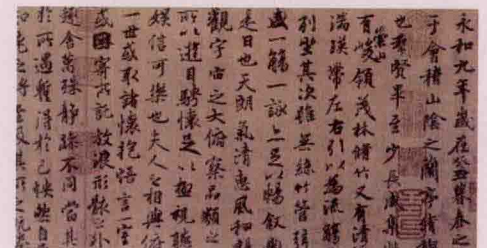 永和九年歲在癸丑暮春之
于會稽山陰之蘭亭脩
也羣賢畢至少長咸集此
有崇山峻領茂林脩竹又有清
湍暎帶左右引以為流觴
列坐其次雖無絲竹管
盛一觴一詠亦足以暢敘
是日也天朗氣清惠風和暢
觀宇宙之大俯察品類之
所以遊目騁懷足以極視聽
娛信可樂也夫人之相與俯
一世或取諸懷抱悟言一室
或因寄所託放浪形骸之外
趣舍萬殊靜躁不同當其
於所遇蹔得於己怏然自
知老之將至及其所之既